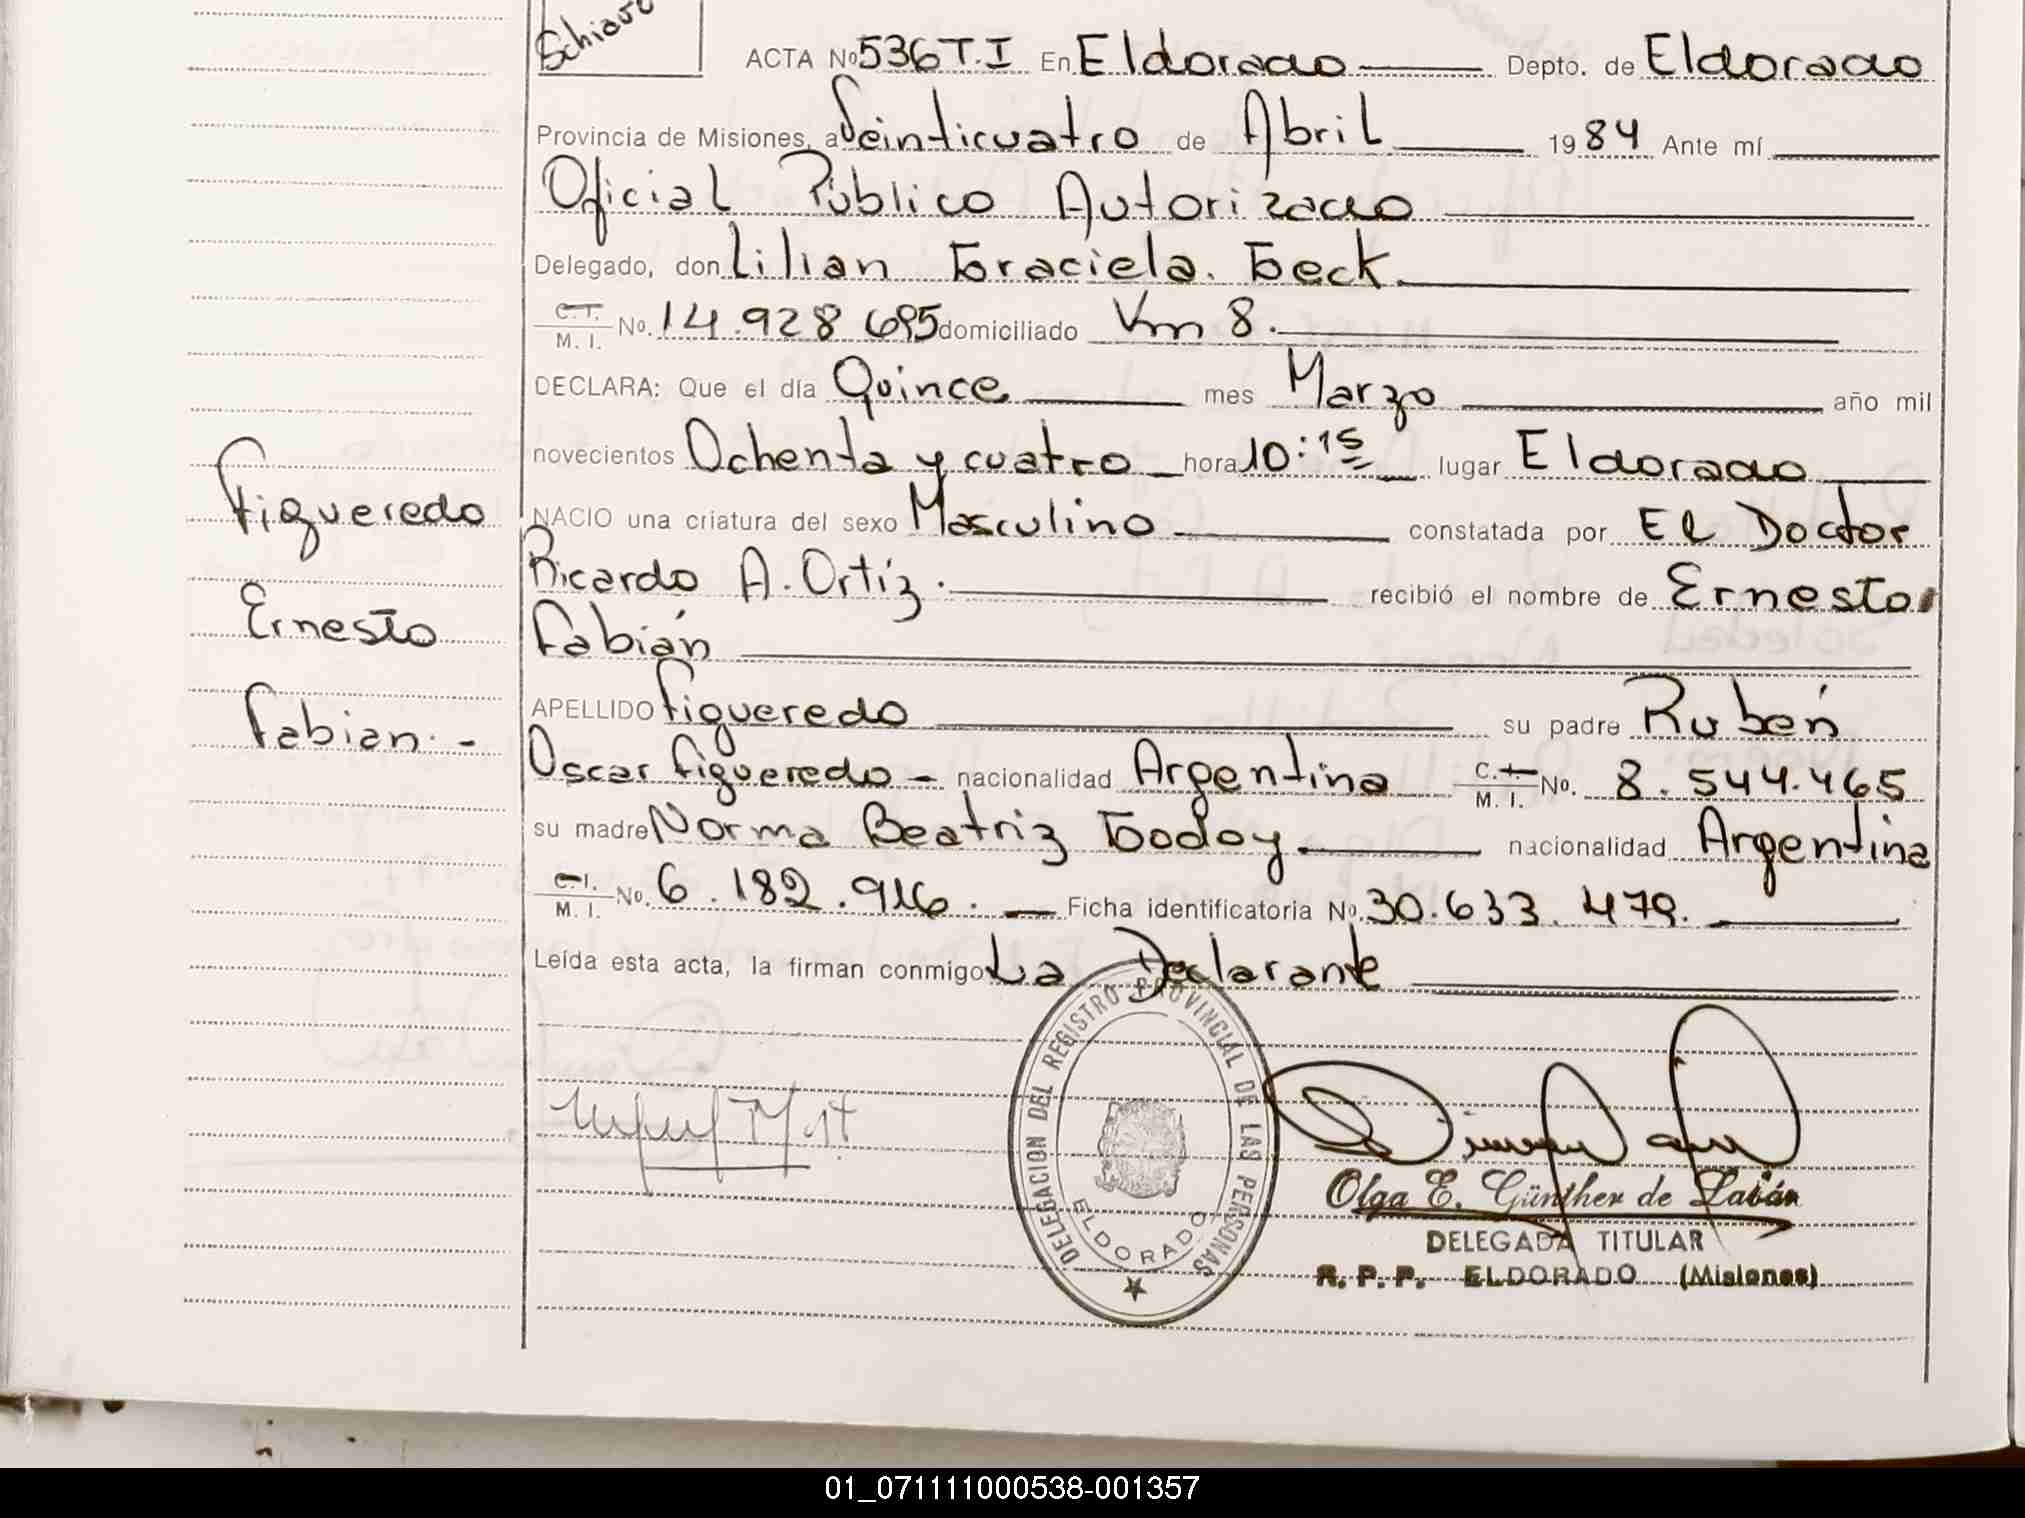 Schiavo
ACTA Nº 536 T.I En Eldorado Depto. de Eldorado
Provincia de Misiones, a Veinticuatro de Abril 1984 Ante mí
Oficial Público Autorizado
Delegado, don Lilian Graciela. Geck
C.I. M. I. No. 14.928.695 domiciliado Km 8.
DECLARA: Que el día Quince mes Marzo año mil
novecientos Ochenta y cuatro hora 10:15 lugar Eldorado
NACIO una criatura del sexo Masculino constatada por El Doctor
Ricardo A. Ortíz. recibió el nombre de Ernesto
Fabián
APELLIDO Figueredo su padre Rubén
Oscar Figueredo - nacionalidad Argentina C.I. M. I. No. 8.544.465
su madre Norma Beatriz Godoy. nacionalidad Argentina
C.I. M. I. No. 6.182.916. - Ficha identificatoria No. 30.633.479.
Leída esta acta, la firman conmigo La Declarante
Figueredo
Ernesto
Fabian.-
DELEGACION DEL REGISTRO PROVINCIAL DE LAS PERSONAS
ELDORADO
Olga E. Günther de
DELEGADA TITULAR
R. P. P. ELDORADO (Misiones)
01_071111000538-001357